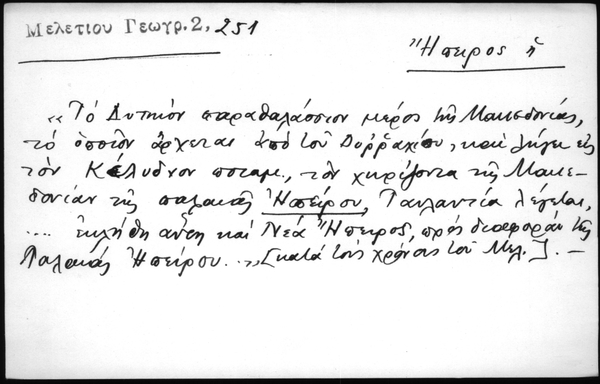 Μελετίου Γεωγρ. 2, 251
Ἤπειρος ἡ
«Τό Δυτικόν παραθαλάσσιον μέρος τῆς Μακεδονίας,
τό ὁποῖον ἄρχεται ἀπό τοῦ Δυῤῥαχίου, καί λήγει εἰς
τόν Κέλυδνον ποταμ., τόν χωρίζοντα τῆς Μακε-
δονίαν τῆς παλαιᾶς Ἠπείρου, Ταυλαντία λέγεται,
.... ἐκλήθη αὕτη καί Νεά Ἤπειρος, πρός διαφοράν τῆς
Παλαιᾶς Ἠπείρου...» [κατά τούς χρόνους τοῦ Μελ.]. –